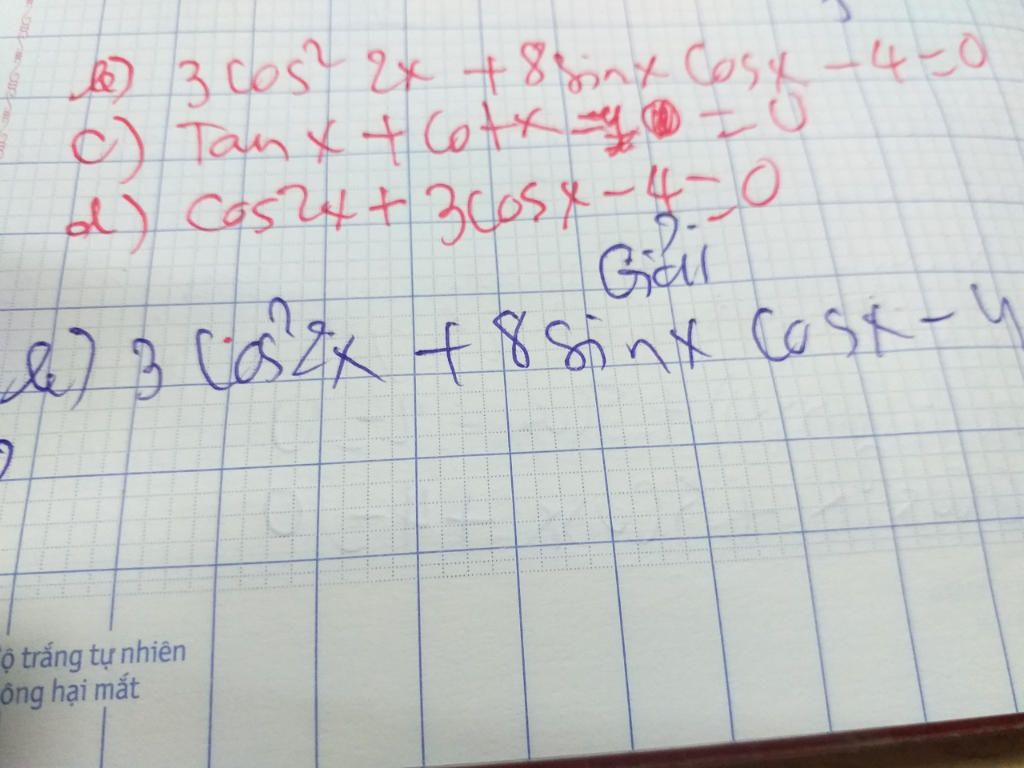 b) 3 cos² 2x + 8 sin x cos x - 4 = 0
c) Tan x + Cot x = 0
d) cos 2x + 3 cos x - 4 = 0
Giải
b) 3 cos² 2x + 8 sin x cos x - 4
ộ trắng tự nhiên
ông hại mắt